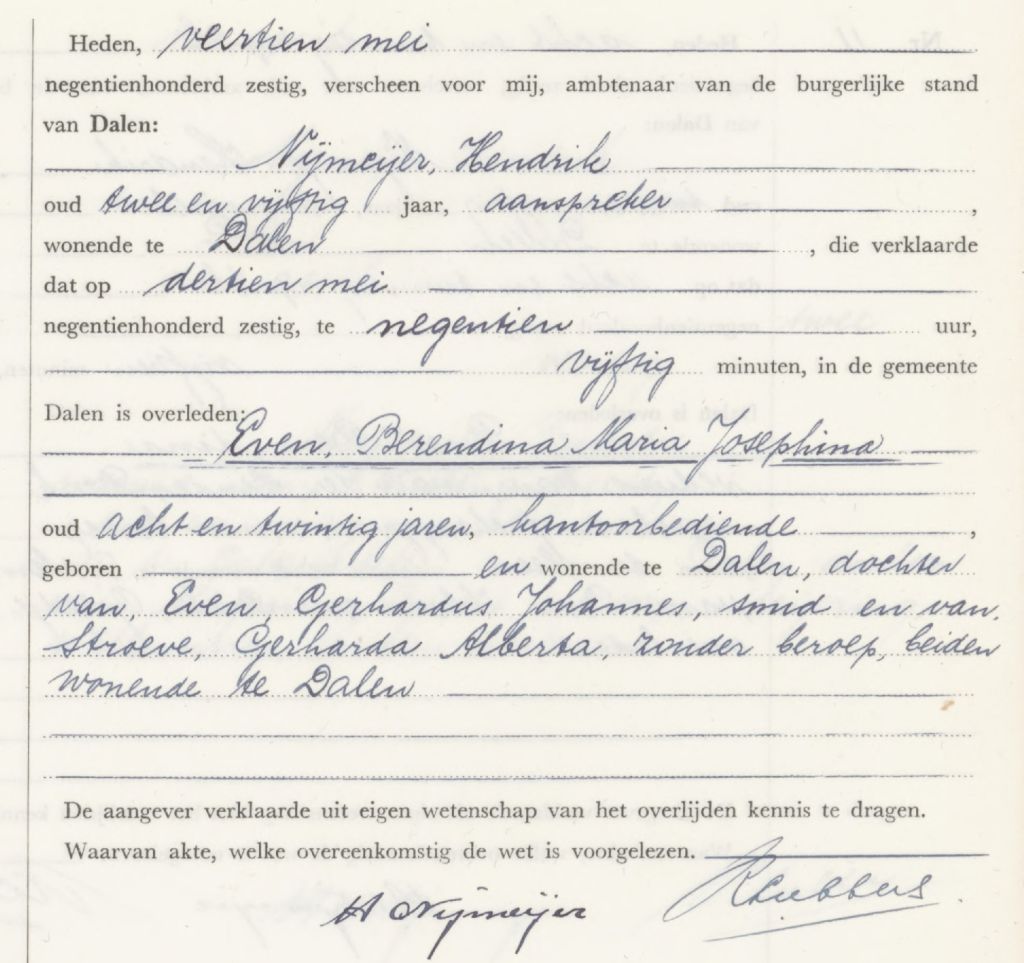 Heden, veertien mei
negentienhonderd zestig, verscheen voor mij, ambtenaar van de burgerlijke stand
van Dalen:
Nijmeijer, Hendrik
oud twee en vijftig jaar, aanspreker ,
wonende te Dalen , die verklaarde
dat op dertien mei
negentienhonderd zestig, te negentien uur,
vijftig minuten, in de gemeente
Dalen is overleden:
Even, Berendina Maria Josephina
oud acht en twintig jaren, kantoorbediende ,
geboren en wonende te Dalen, dochter
van, Even, Gerhardus Johannes, smid en van,
Stroeve, Gerharda Alberta, zonder beroep, beiden
wonende te Dalen
De aangever verklaarde uit eigen wetenschap van het overlijden kennis te dragen.
Waarvan akte, welke overeenkomstig de wet is voorgelezen.
H Nijmeijer